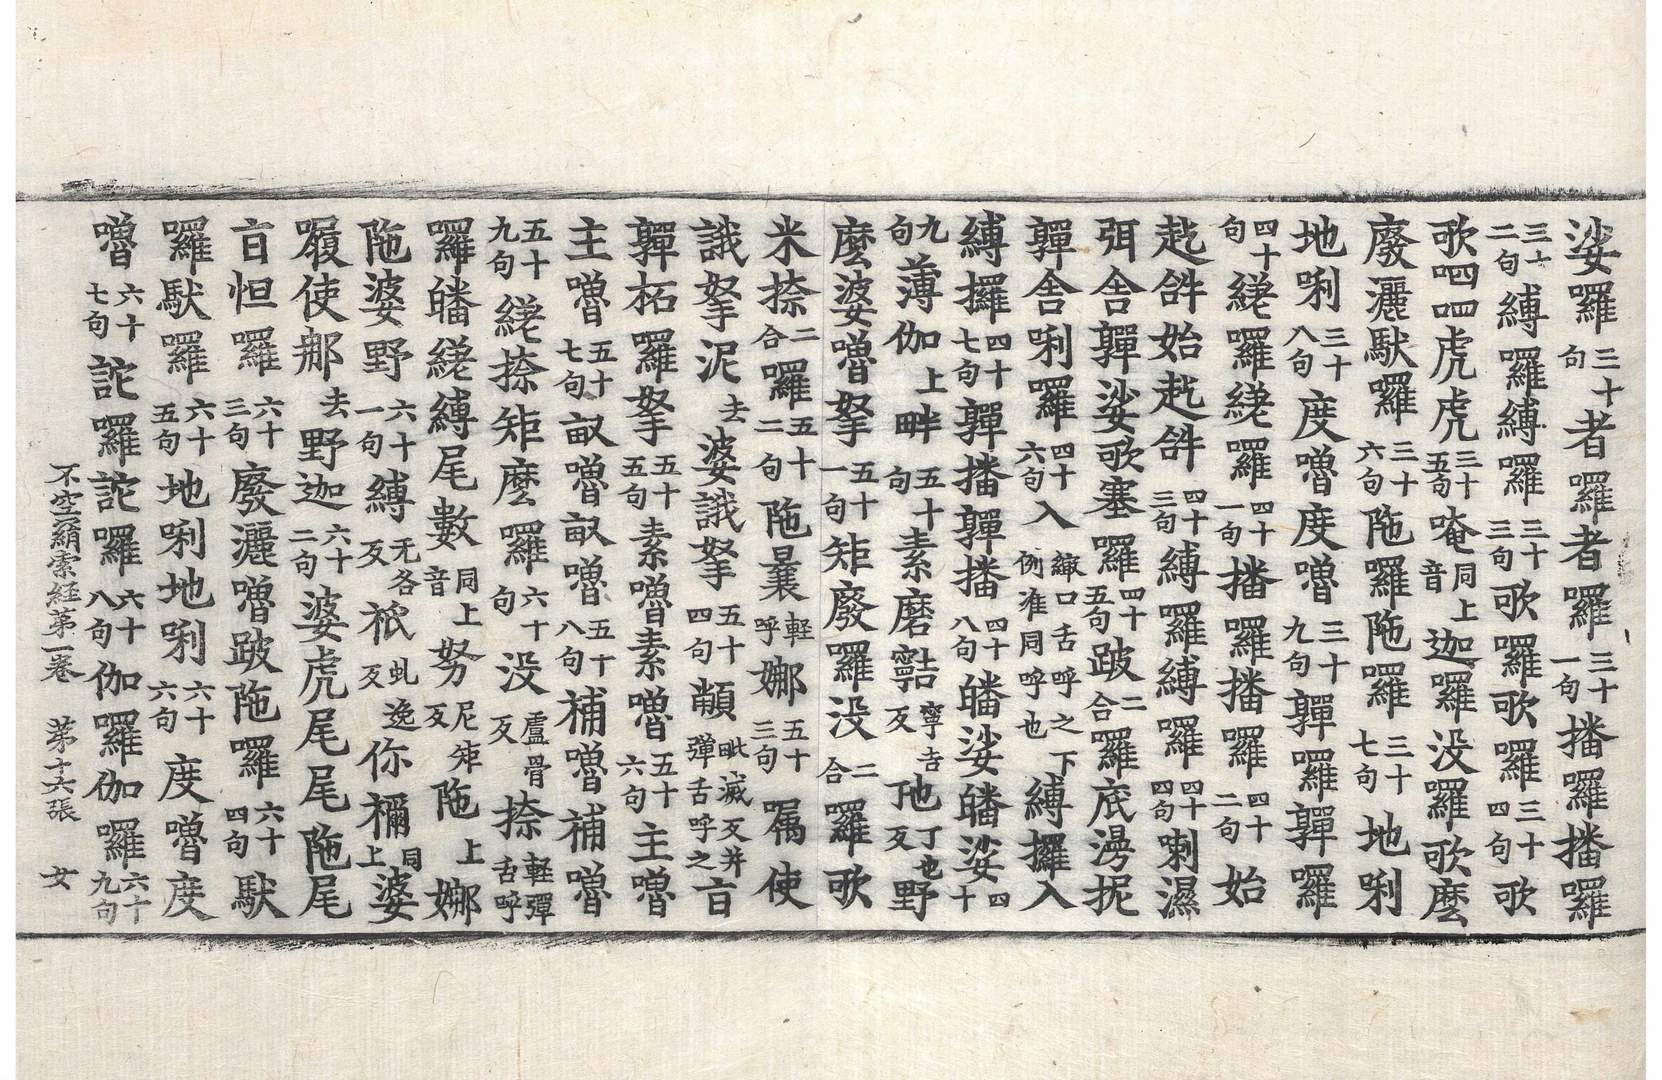 娑囉三十句者囉者囉三十一句播囉播囉
三十二句縛囉縛囉三十三句歌囉歌囉三十四句歌
歌呬呬虎虎三十五句唵同上音迦囉没囉歌麽
廢灑馱囉三十六句陁囉陁囉三十七句地唎
地唎三十八句度嚕度嚕三十九句亸囉亸囉
四十句縒囉縒囉四十一句播囉播囉四十二句始
訖紟始訖紟四十三句縛囉縛囉四十四句喇濕
弭舍亸娑歌塞囉四十五句跛二合囉底漫抳
亸舍唎囉四十六句入緻口舌呼之下例准同呼也縛攞入
縛攞四十七句亸播亸播四十八句皤娑皤娑四十
九句薄伽上畔五十句素磨寧吉反地丁也反野
麽婆嚕拏五十一句矩廢囉没二合囉歌
米捺二合囉五十二句陁曩輕呼娜五十三句㘄使
誐拏泥去婆誐拏五十四句顢毗滅反并彈舌呼之亘
亸柘囉拏五十五句素嚕素嚕五十六句主嚕
主嚕五十七句㕞嚕㕞嚕五十八句補嚕補嚕
五十九句縒捺矩麽囉六十句没盧骨反捺輕彈舌呼
囉皤縒縛尾數同上音努尼矩反陁上娜
陁婆野六十一句縛无各反祇虬逸反你禰同上婆
履使那去野迦六十二句婆虎尾尾陁尾
亘怛囉六十三句廢灑嚕跛陁囉六十四句馱
囉馱囉六十五句地唎地唎六十六句度嚕度
嚕六十七句詑囉詑囉六十八句伽囉伽囉六十九句
不空羂索經第一卷 第十六張 女